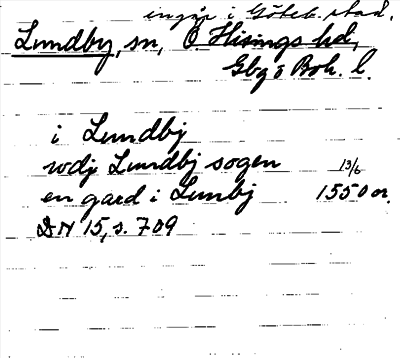 ingår i Göteb. stad.
Lundby, sn, Ö Hisings hd,
Gbg o Boh. l.
i Lundbÿ
wdj Lundbÿ sogen 13/6
en gard i Lunbÿ 1550 or.
DN 15, s. 709